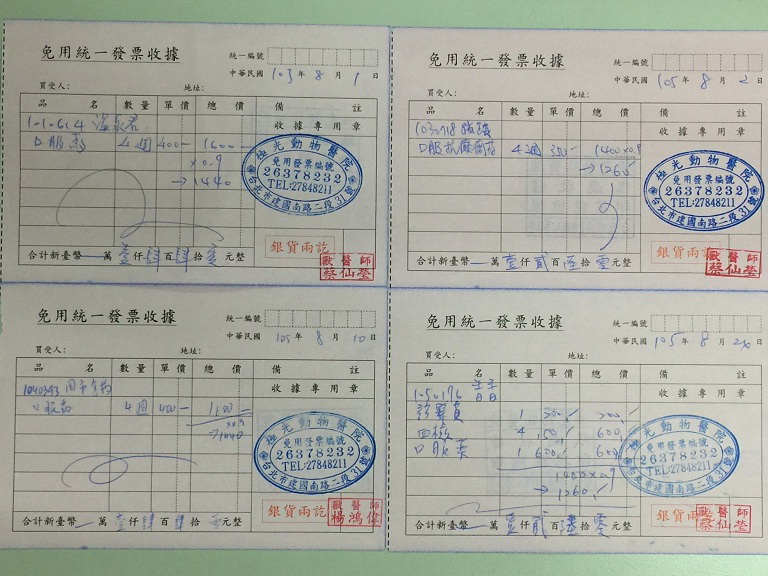 免用統一發票收據
統一編號
中華民國 103 年 8 月 1 日
買受人： 地址：
品 名 數量 單價 總價 備 註
收據專用章
口服藥 4週 400- 1600-
×0.9
→1440
極光動物醫院
免用發票編號
26378232
TEL:27848211
台北市建國南路二段31號
銀貨兩訖
獸醫師
蔡仙瑩
合計新臺幣 萬壹仟肆百肆拾零元整
免用統一發票收據
統一編號
中華民國 105 年 8 月 2 日
買受人： 地址：
品 名 數量 單價 總價 備 註
收據專用章
1030718
4週 350- 1400×0.9
→1260
極光動物醫院
免用發票編號
26378232
TEL:27848211
台北市建國南路二段31號
銀貨兩訖
獸醫師
蔡仙瑩
合計新臺幣 萬壹仟貳百陸拾零元整
免用統一發票收據
統一編號
中華民國 105 年 8 月 10 日
買受人： 地址：
品 名 數量 單價 總價 備 註
收據專用章
4週 400-
極光動物醫院
免用發票編號
26378232
TEL:27848211
台北市建國南路二段31號
銀貨兩訖
獸醫師
楊鴻偉
合計新臺幣 萬壹仟肆百肆拾零元整
免用統一發票收據
統一編號
中華民國 105 年 8 月 日
買受人： 地址：
品 名 數量 單價 總價 備 註
收據專用章
1-50176
診察費 1 200 200
血檢 4 150 600
口服藥 1 600 600
1400×0.9
→1260
極光動物醫院
免用發票編號
26378232
TEL:27848211
台北市建國南路二段31號
銀貨兩訖
獸醫師
蔡仙瑩
合計新臺幣 萬壹仟貳百陸拾零元整